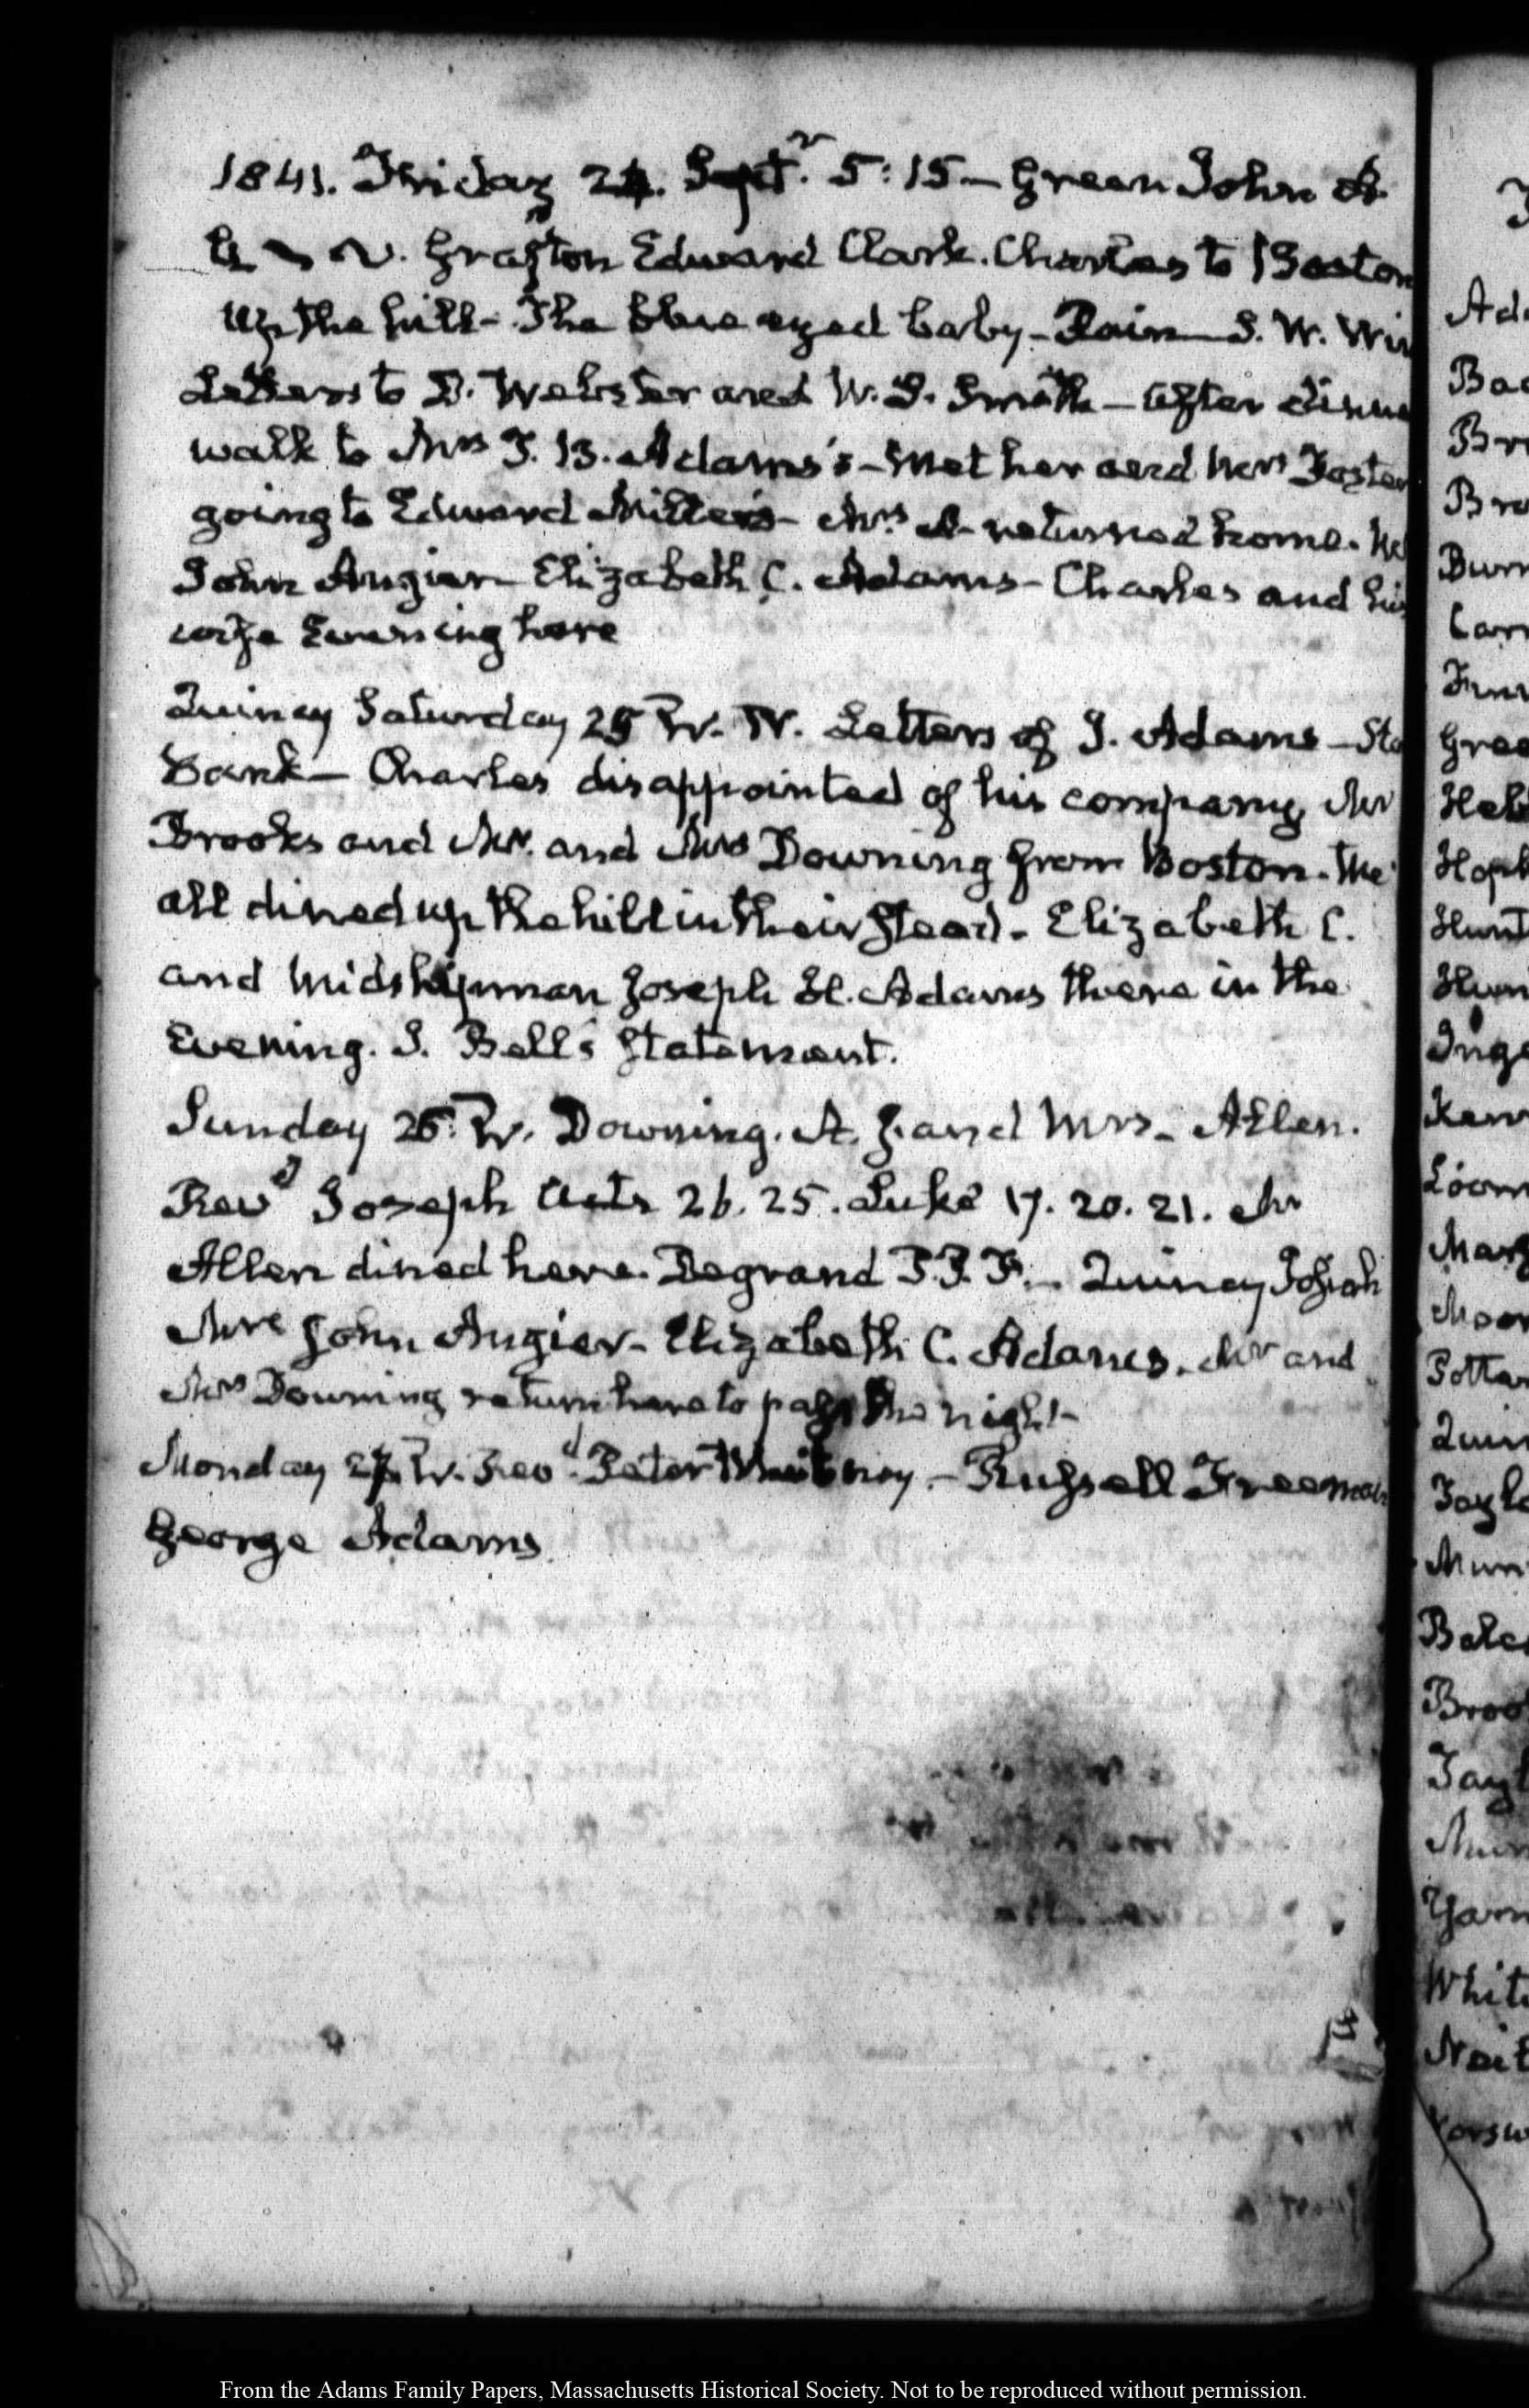 1841. Friday 24. Septr. 5:15 – Green John O.
Grafton Edward Clark. Charles to Boston
up the hill – The blue eyed baby – Rain – S. W. Win
Letters to D. Webster and W. S. Smith – After dinne
walk to Mrs T. B. Adams's – Met her and Mrs Foster
going to Edward Miller's – Mrs. A. returned home.
John Angier – Elizabeth C. Adams – Charles and his
wife Evening here
Quincy Saturday 25 IV. Letters of J. Adams – Sta
Bank – Charles disappointed of his company, Mr
Brooks and Mr. and Mrs Downing from Boston. We
all dined up the hill in their stead. Elizabeth C.
and Midshipman Joseph H. Adams there in the
Evening. J. Bell's Statement.
Sunday 26. IV. Downing. A. J. and Mrs – Allen.
Revd Joseph Acts 26. 25. Luke 17. 20. 21. Mr
Allen dined here. Degrand P. P. F. – Quincy Josiah
Mrs John Angier – Elizabeth C. Adams. Mr and
Mrs Downing return here to pass the night –
Monday 27. IV. Revd. Peter Whitney – Russell Freeman
George Adams.
Ad
Bac
Br
Bro
Bur
Car
Gree
Heb
Hopk
Hunt
Hun
Inge
Ken
Loom
Mar
Moor
Potter
Quin
Tayl
Mun
Balc
Broo
Tayl
Yarn
White
From the Adams Family Papers, Massachusetts Historical Society. Not to be reproduced without permission.